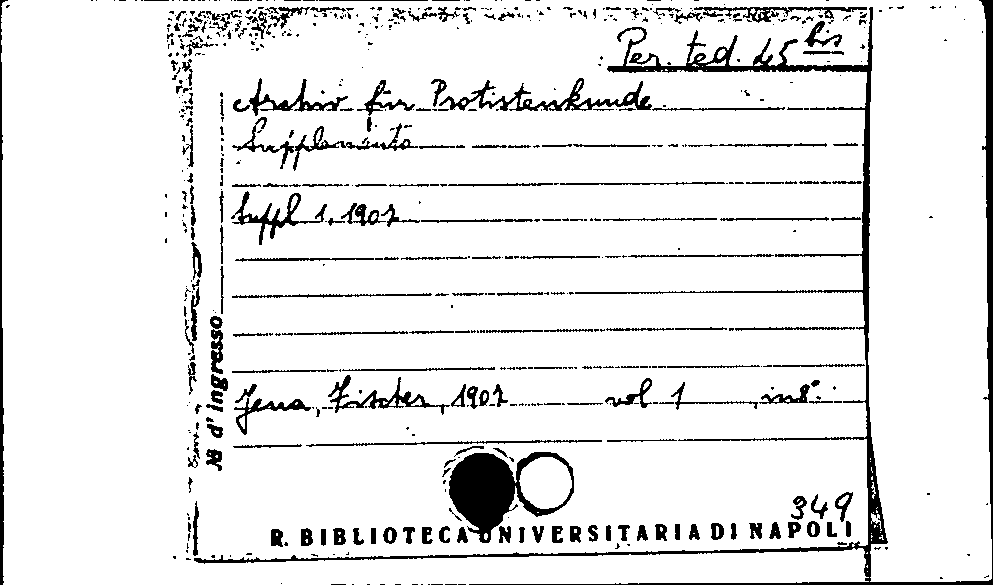 Per. ted. 45 bis
Archiv für Protistenkunde
Supplemento
Suppl 1. 1907
Jena, Fischer, 1907 vol 1, in 8°.
N d' ingresso
349
R. BIBLIOTECA UNIVERSITARIA DI NAPOLI